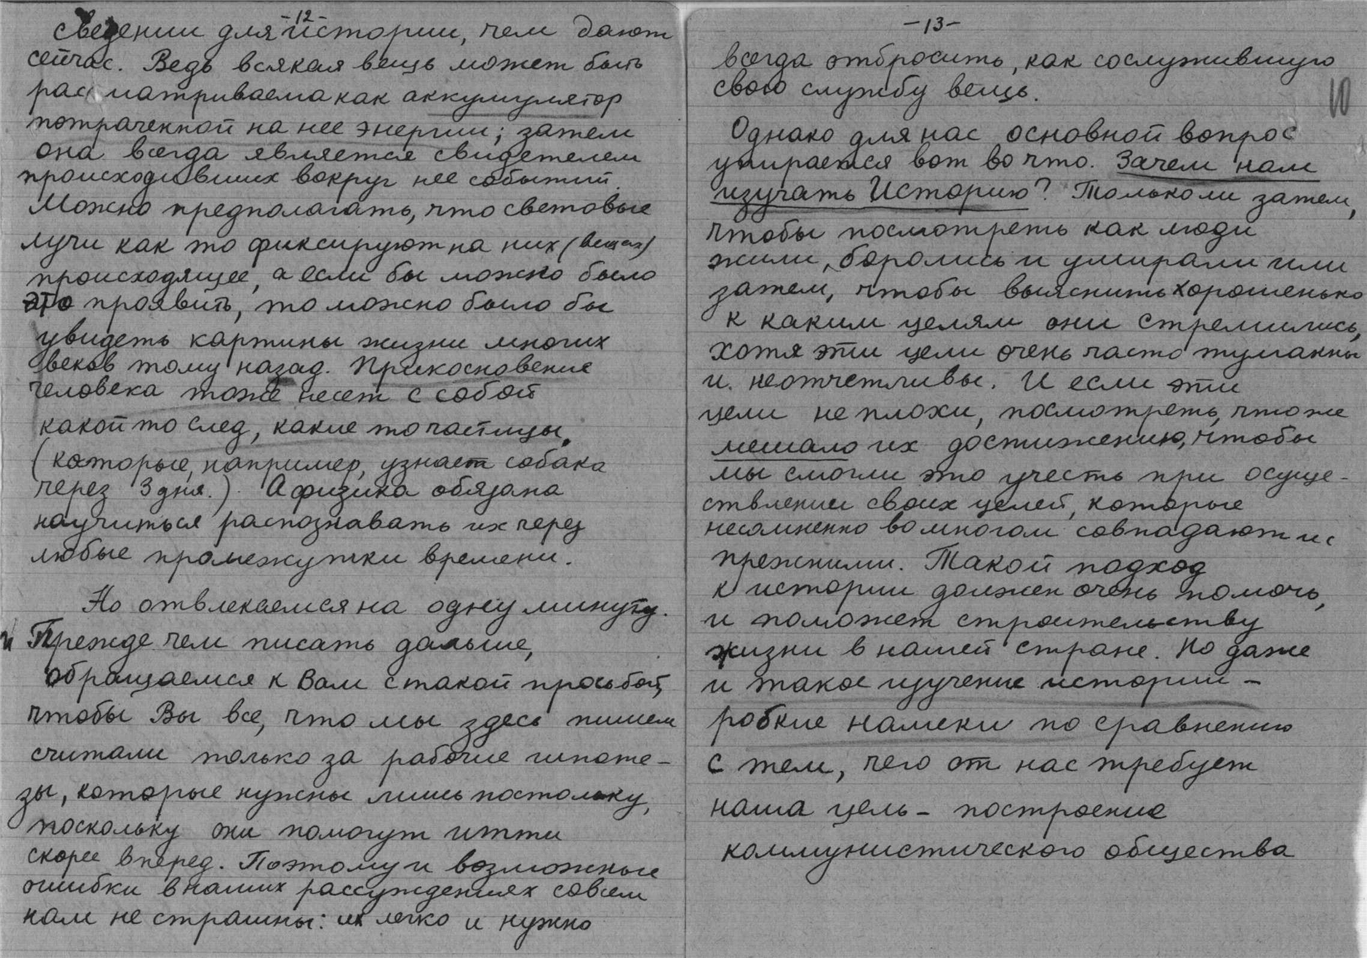 -12-
сведении для истории, чем дают
сейчас. Ведь всякая вещь может быть
рассматриваема как аккумулятор
потраченной на нее энергии; затем
она всегда является свидетелем
происходивших вокруг нее событий.
Можно предполагать, что световые
лучи как то фиксируют на них (вещах)
происходящее, а если бы можно было
это проявить, то можно было бы
увидеть картины жизни многих
веков тому назад. Прикосновение
человека тоже несет с собой
какой то след, какие то частицы,
(которые, например, узнает собака
через 3 дня.) А физика обязана
научиться распознавать их через
любые промежутки времени.
Но отвлекаемся на одну минуту.
и Прежде чем писать дальше,
обращаемся к Вам с такой просьбой,
чтобы Вы все, что мы здесь пишем
считали только за рабочие гипоте-
зы, которые нужны лишь постольку,
поскольку они помогут итти
скорее вперед. Поэтому и возможные
ошибки в наших рассуждениях совсем
нам не страшны: их легко и нужно
-13-
10
всегда отбросить, как сослужившую
свою службу вещь.
Однако для нас основной вопрос
упирается вот во что. Зачем нам
изучать Историю? Только ли затем,
чтобы посмотреть как люди
жили, боролись и умирали или
затем, чтобы выяснить хорошенько
к каким целям они стремились,
хотя эти цели очень часто туманны
и неотчетливы. И если эти
цели не плохи, посмотреть, что же
мешало их достижению, чтобы
мы смогли это учесть при осуще-
ствлении своих целей, которые
несомненно во многом совпадают и с
прежними. Такой подход
к истории должен очень помочь,
и поможет строительству
жизни в нашей стране. Но даже
и такое изучение истории –
робкие намеки по сравнению
с тем, чего от нас требует
наша цель – построение
коммунистического общества